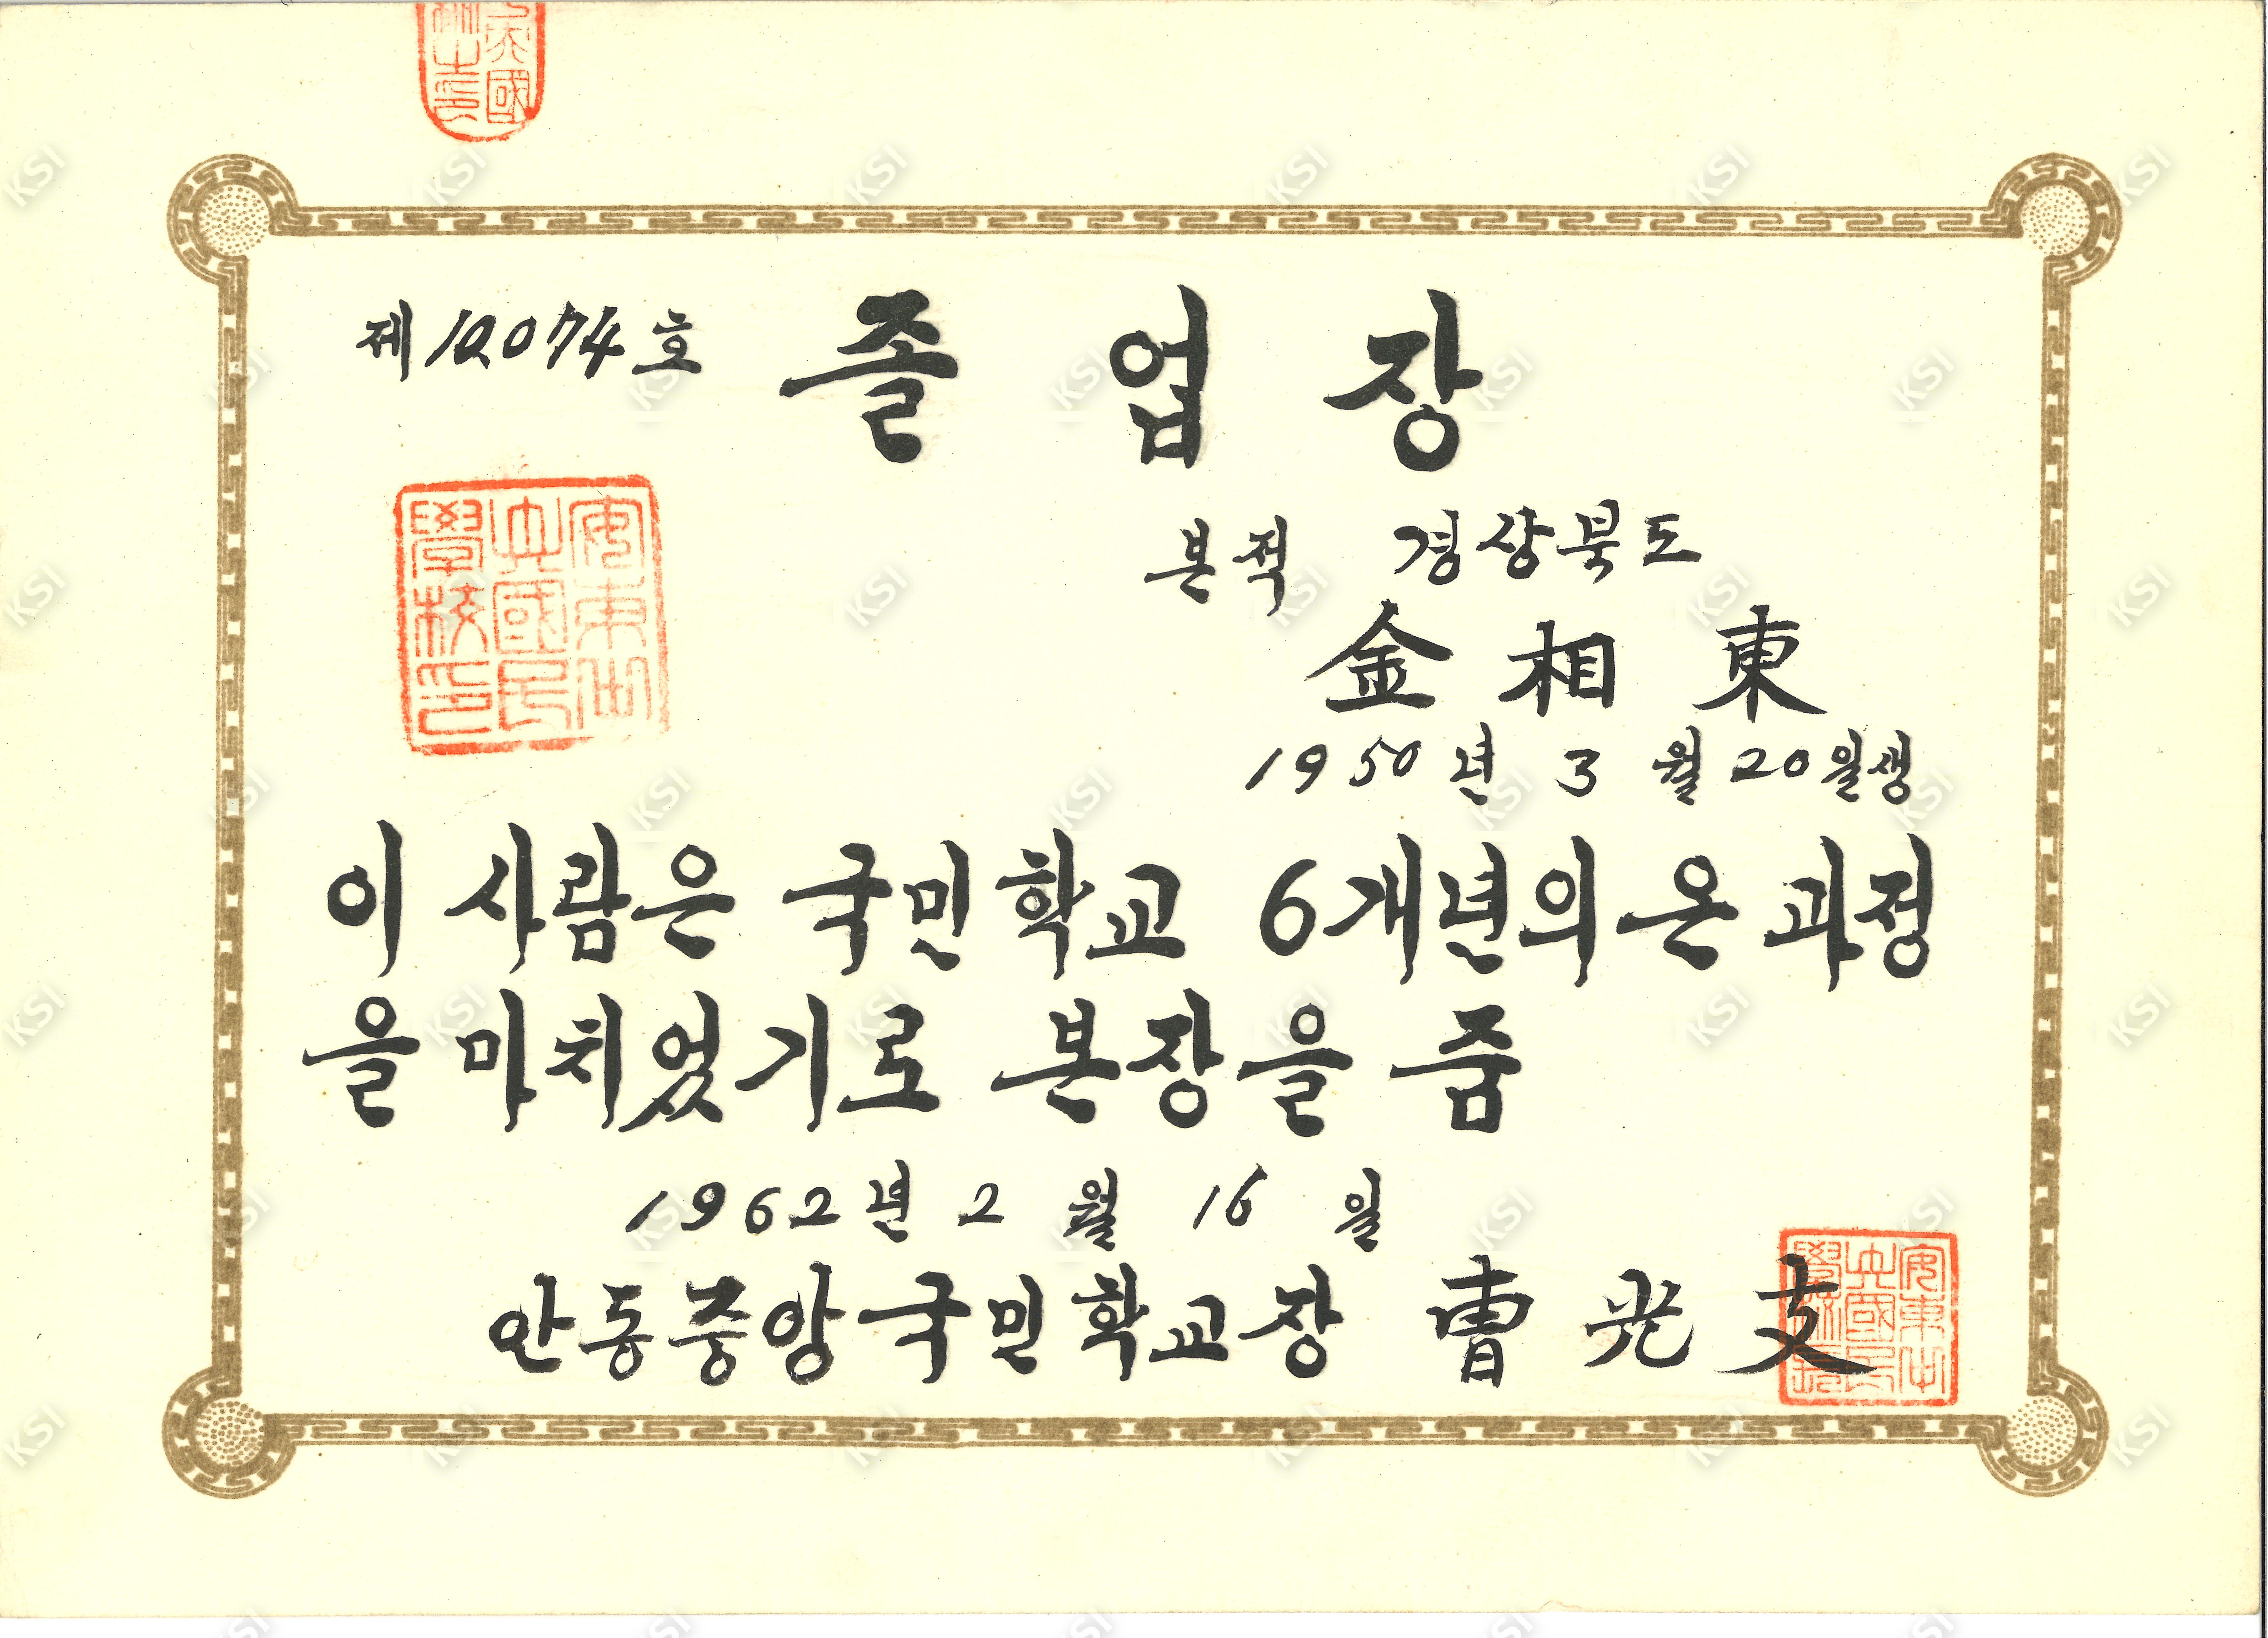 제10,074호 졸업장
본적 경상북도
金相東
1950년 3월 20일생
이 사람은 국민학교 6개년의 온 과정
을 마치었기로 본장을 줌
1962년 2월 16일
안동중앙국민학교장 曺光文
安東中央國民學校印
KSI